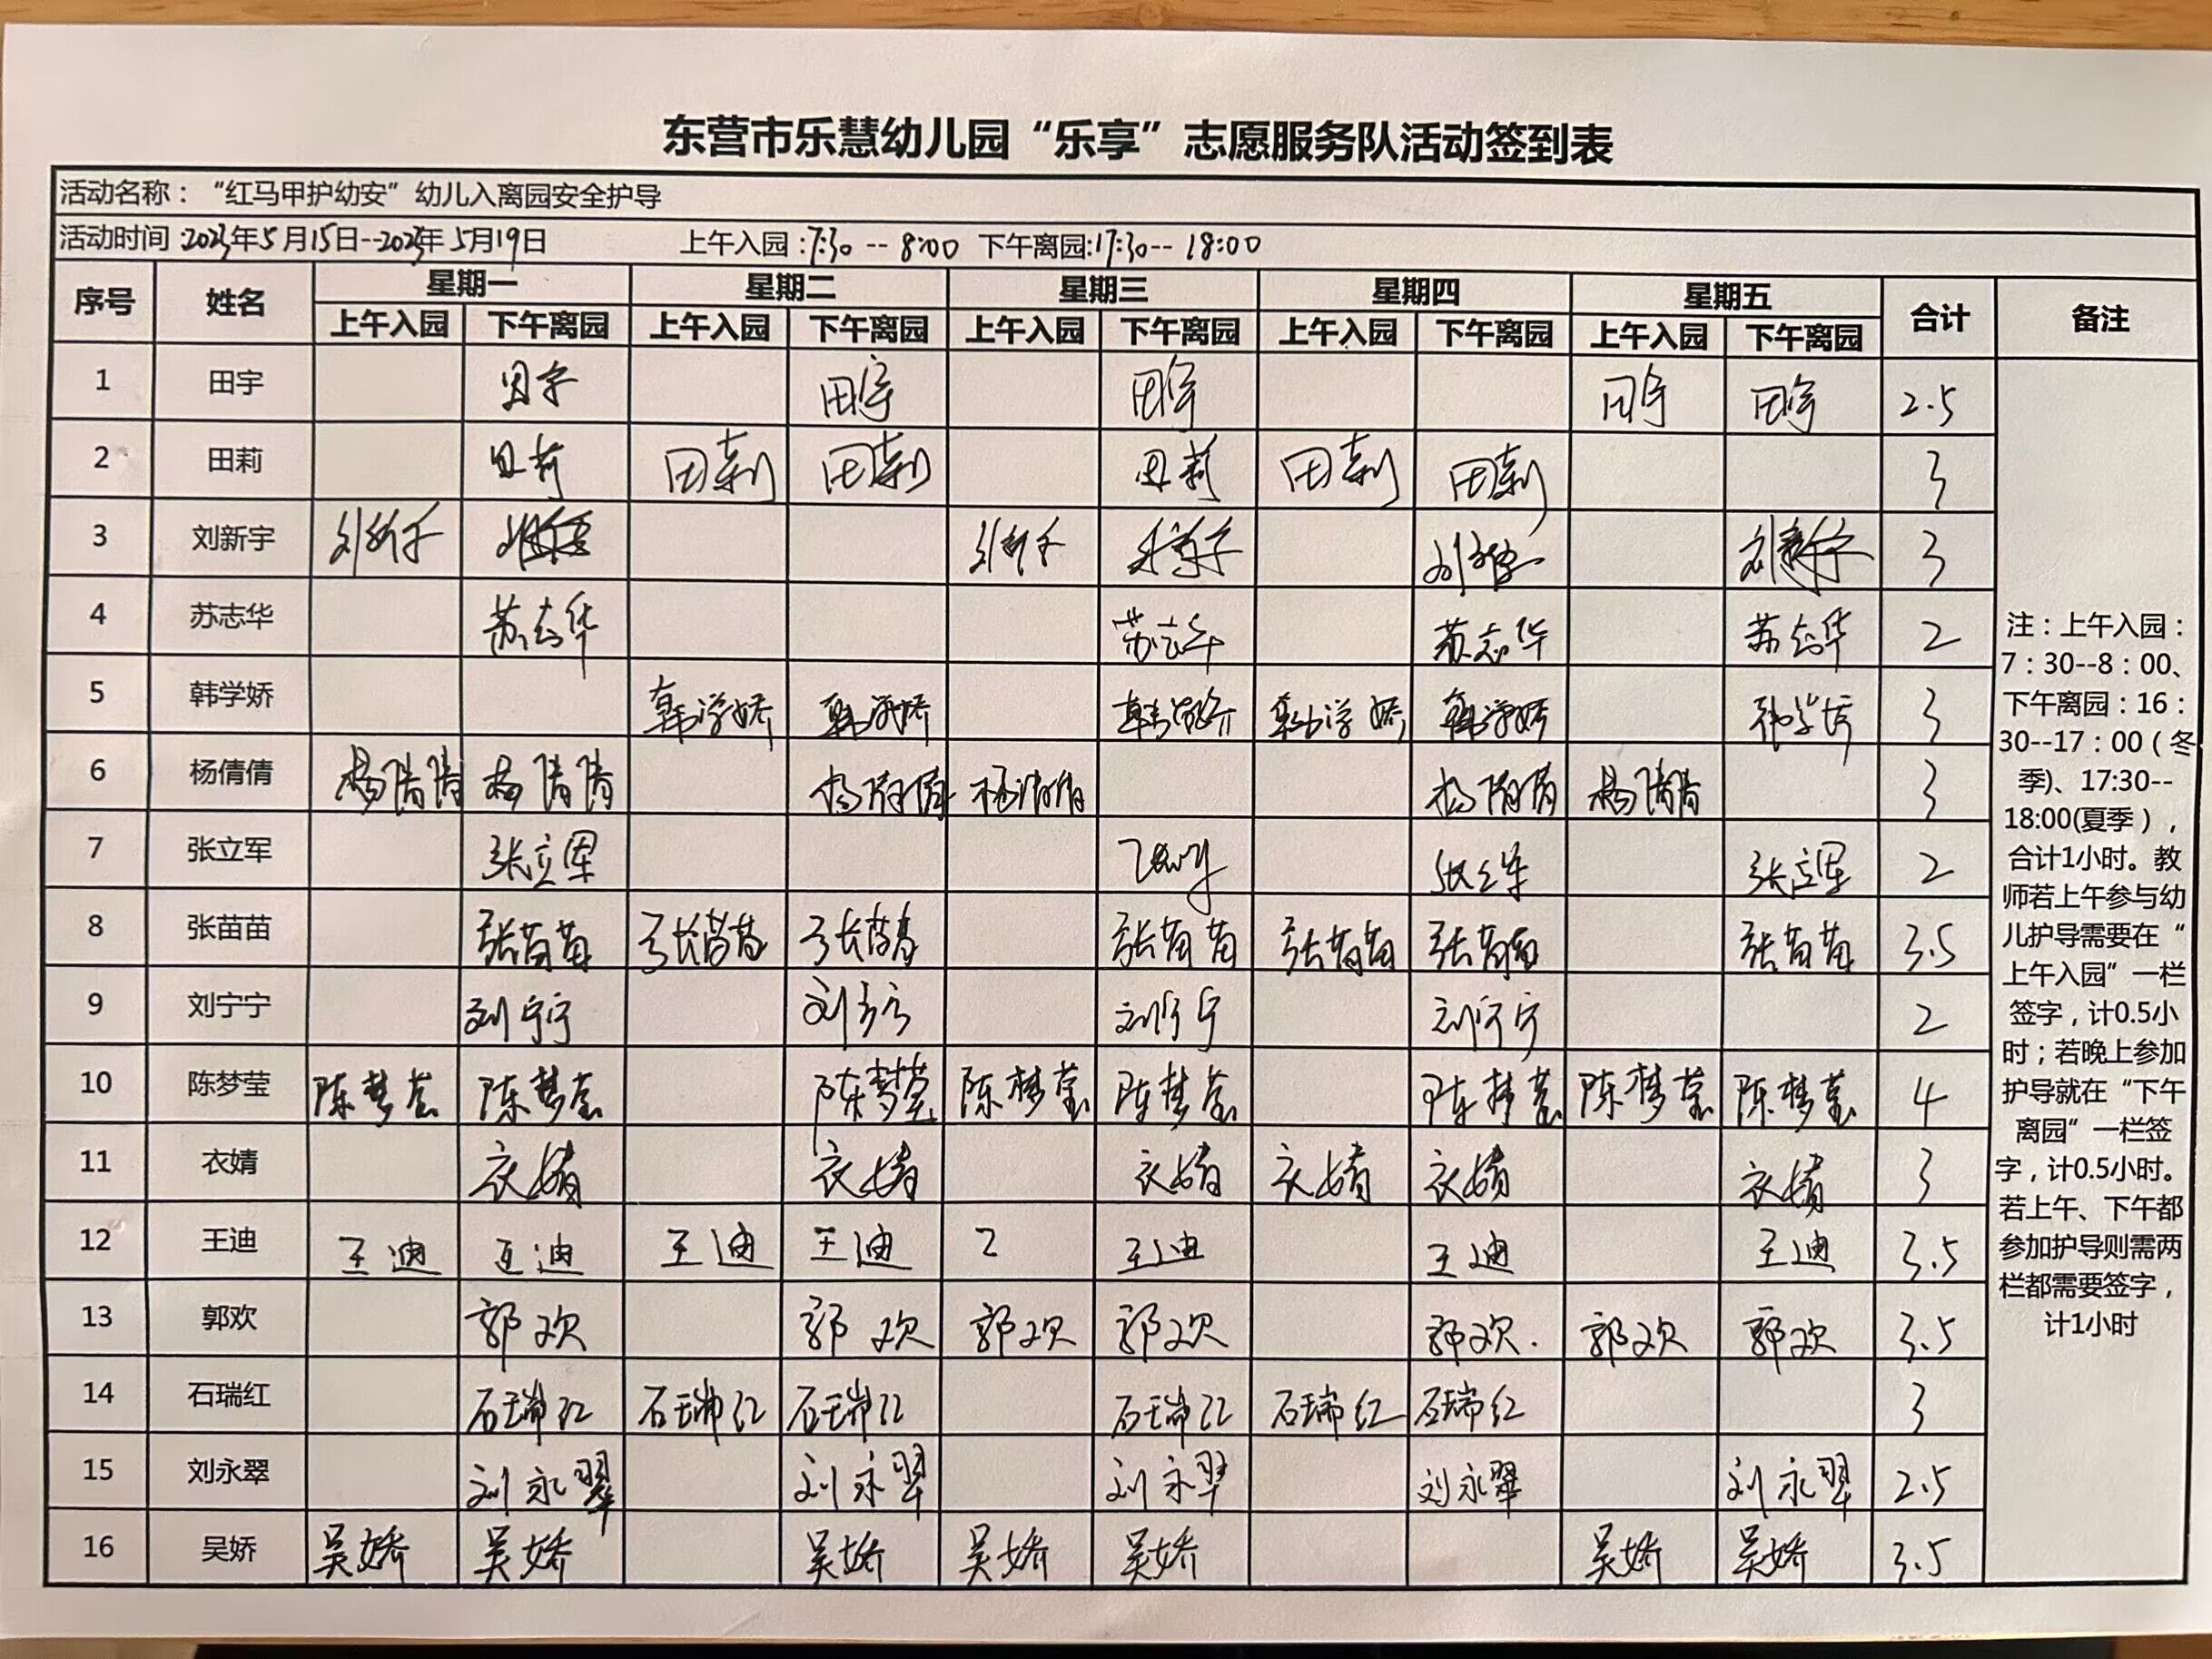 东营市乐慧幼儿园“乐享”志愿服务队活动签到表
活动名称：“红马甲护幼安”幼儿入离园安全护导
活动时间:2023年5月15日--2023年5月19日 上午入园:7:30--8:00 下午离园:17:30--18:00
序号 姓名 星期一 星期二 星期三 星期四 星期五 合计 备注
上午入园 下午离园 上午入园 下午离园 上午入园 下午离园 上午入园 下午离园 上午入园 下午离园
1 田宇 田宇 田宇 田宇 田宇 田宇 2.5
2 田莉 田莉 田莉 田莉 田莉 田莉 田莉 3
3 刘新宇 刘新宇 刘新宇 刘新宇 刘新宇 刘新宇 刘新宇 3
4 苏志华 苏志华 苏志华 苏志华 苏志华 2
5 韩学娇 韩学娇 韩学娇 韩学娇 韩学娇 韩学娇 韩学娇 3
6 杨倩倩 杨倩倩 杨倩倩 杨倩倩 杨倩倩 杨倩倩 杨倩倩 3
7 张立军 张立军 张立军 张立军 2
8 张苗苗 张苗苗 张苗苗 张苗苗 张苗苗 张苗苗 张苗苗 张苗苗 3.5
9 刘宁宁 刘宁宁 刘宁宁 刘宁宁 刘宁宁 2
10 陈梦莹 陈梦莹 陈梦莹 陈梦莹 陈梦莹 陈梦莹 陈梦莹 陈梦莹 陈梦莹 4
11 衣婧 衣婧 衣婧 衣婧 衣婧 衣婧 衣婧 3
12 王迪 王迪 王迪 王迪 王迪 王迪 王迪 王迪 3.5
13 郭欢 郭欢 郭欢 郭欢 郭欢 郭欢. 郭欢 郭欢 3.5
14 石瑞红 石瑞红 石瑞红 石瑞红 石瑞红 石瑞红 石瑞红 3
15 刘永翠 刘永翠 刘永翠 刘永翠 刘永翠 刘永翠 2.5
16 吴娇 吴娇 吴娇 吴娇 吴娇 吴娇 吴娇 吴娇 3.5
注：上午入园：
7：30--8：00、
下午离园：16：
30--17：00（冬
季)、17:30--
18:00(夏季），
合计1小时。教
师若上午参与幼
儿护导需要在“
上午入园”一栏
签字，计0.5小
时；若晚上参加
护导就在“下午
离园”一栏签
字，计0.5小时。
若上午、下午都
参加护导则需两
栏都需要签字，
计1小时